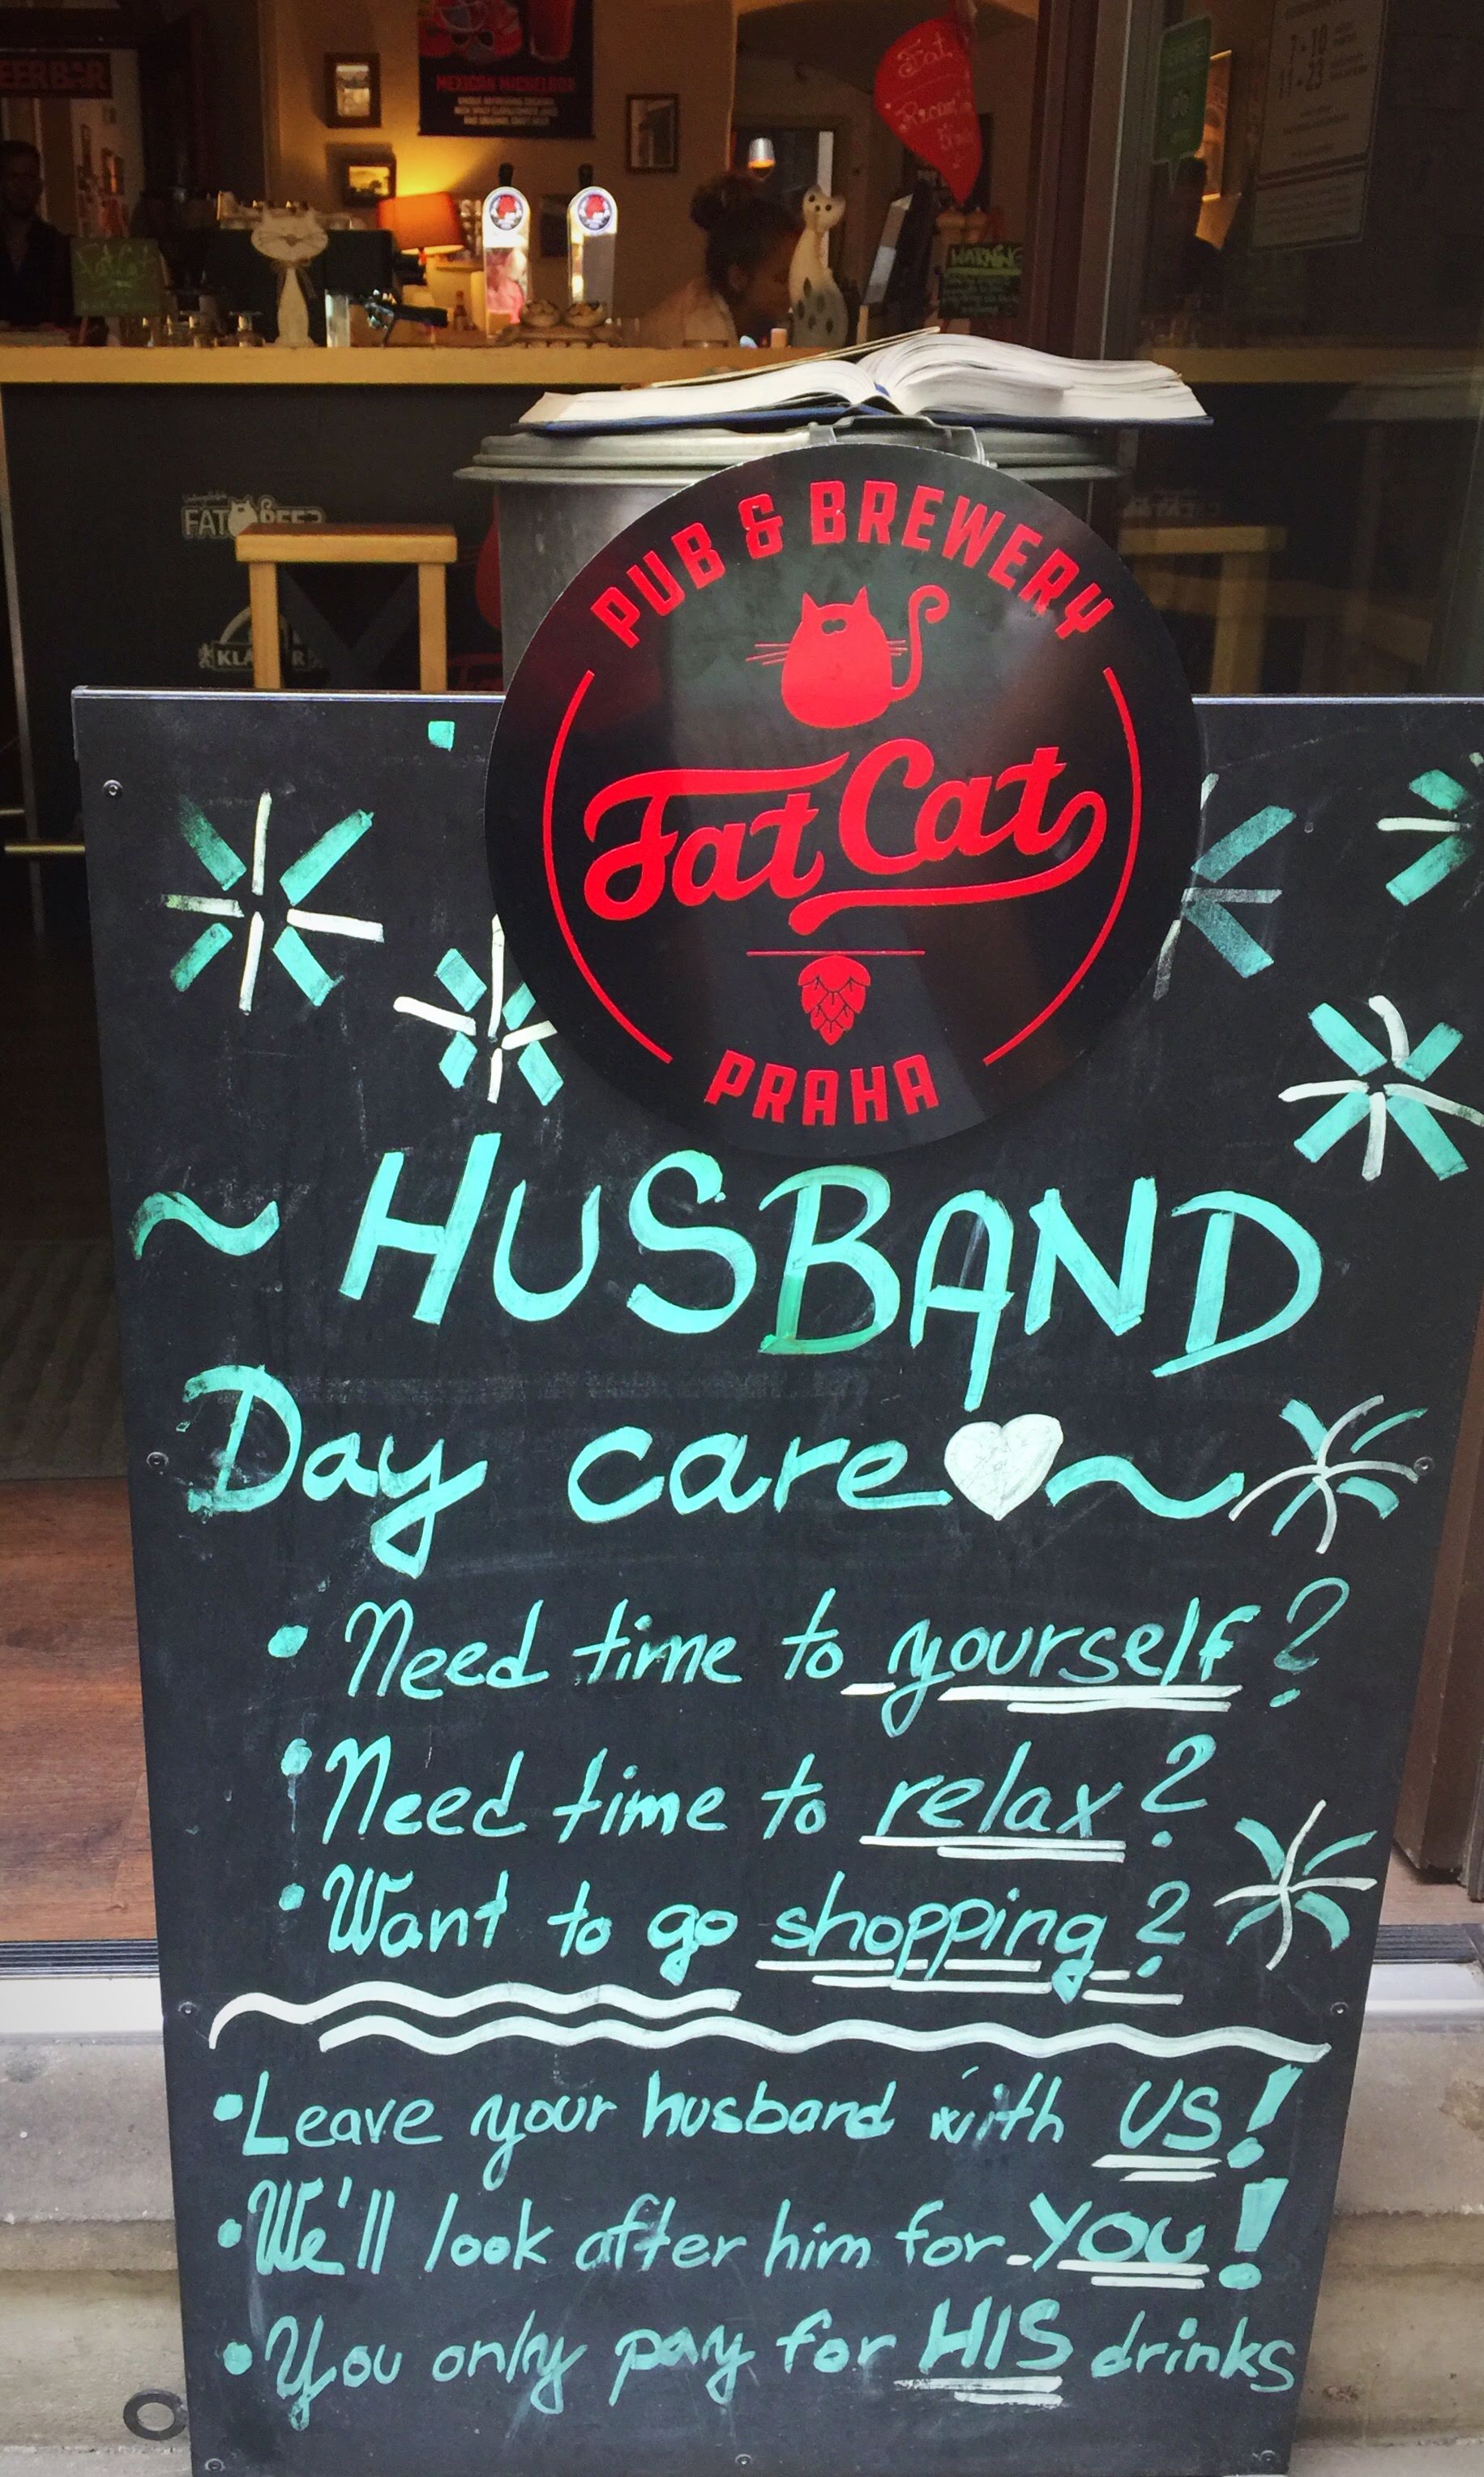 EERBAR
MEXICAN MICHELADA
Fat
7-10
11-23
WARNING
FAT BEER
PUB & BREWERY
Fat Cat
PRAHA
~ HUSBAND
Day care ~
• Need time to yourself?
• Need time to relax?
• Want to go shopping?
• Leave your husband with US!
• We'll look after him for YOU!
• You only pay for HIS drinks